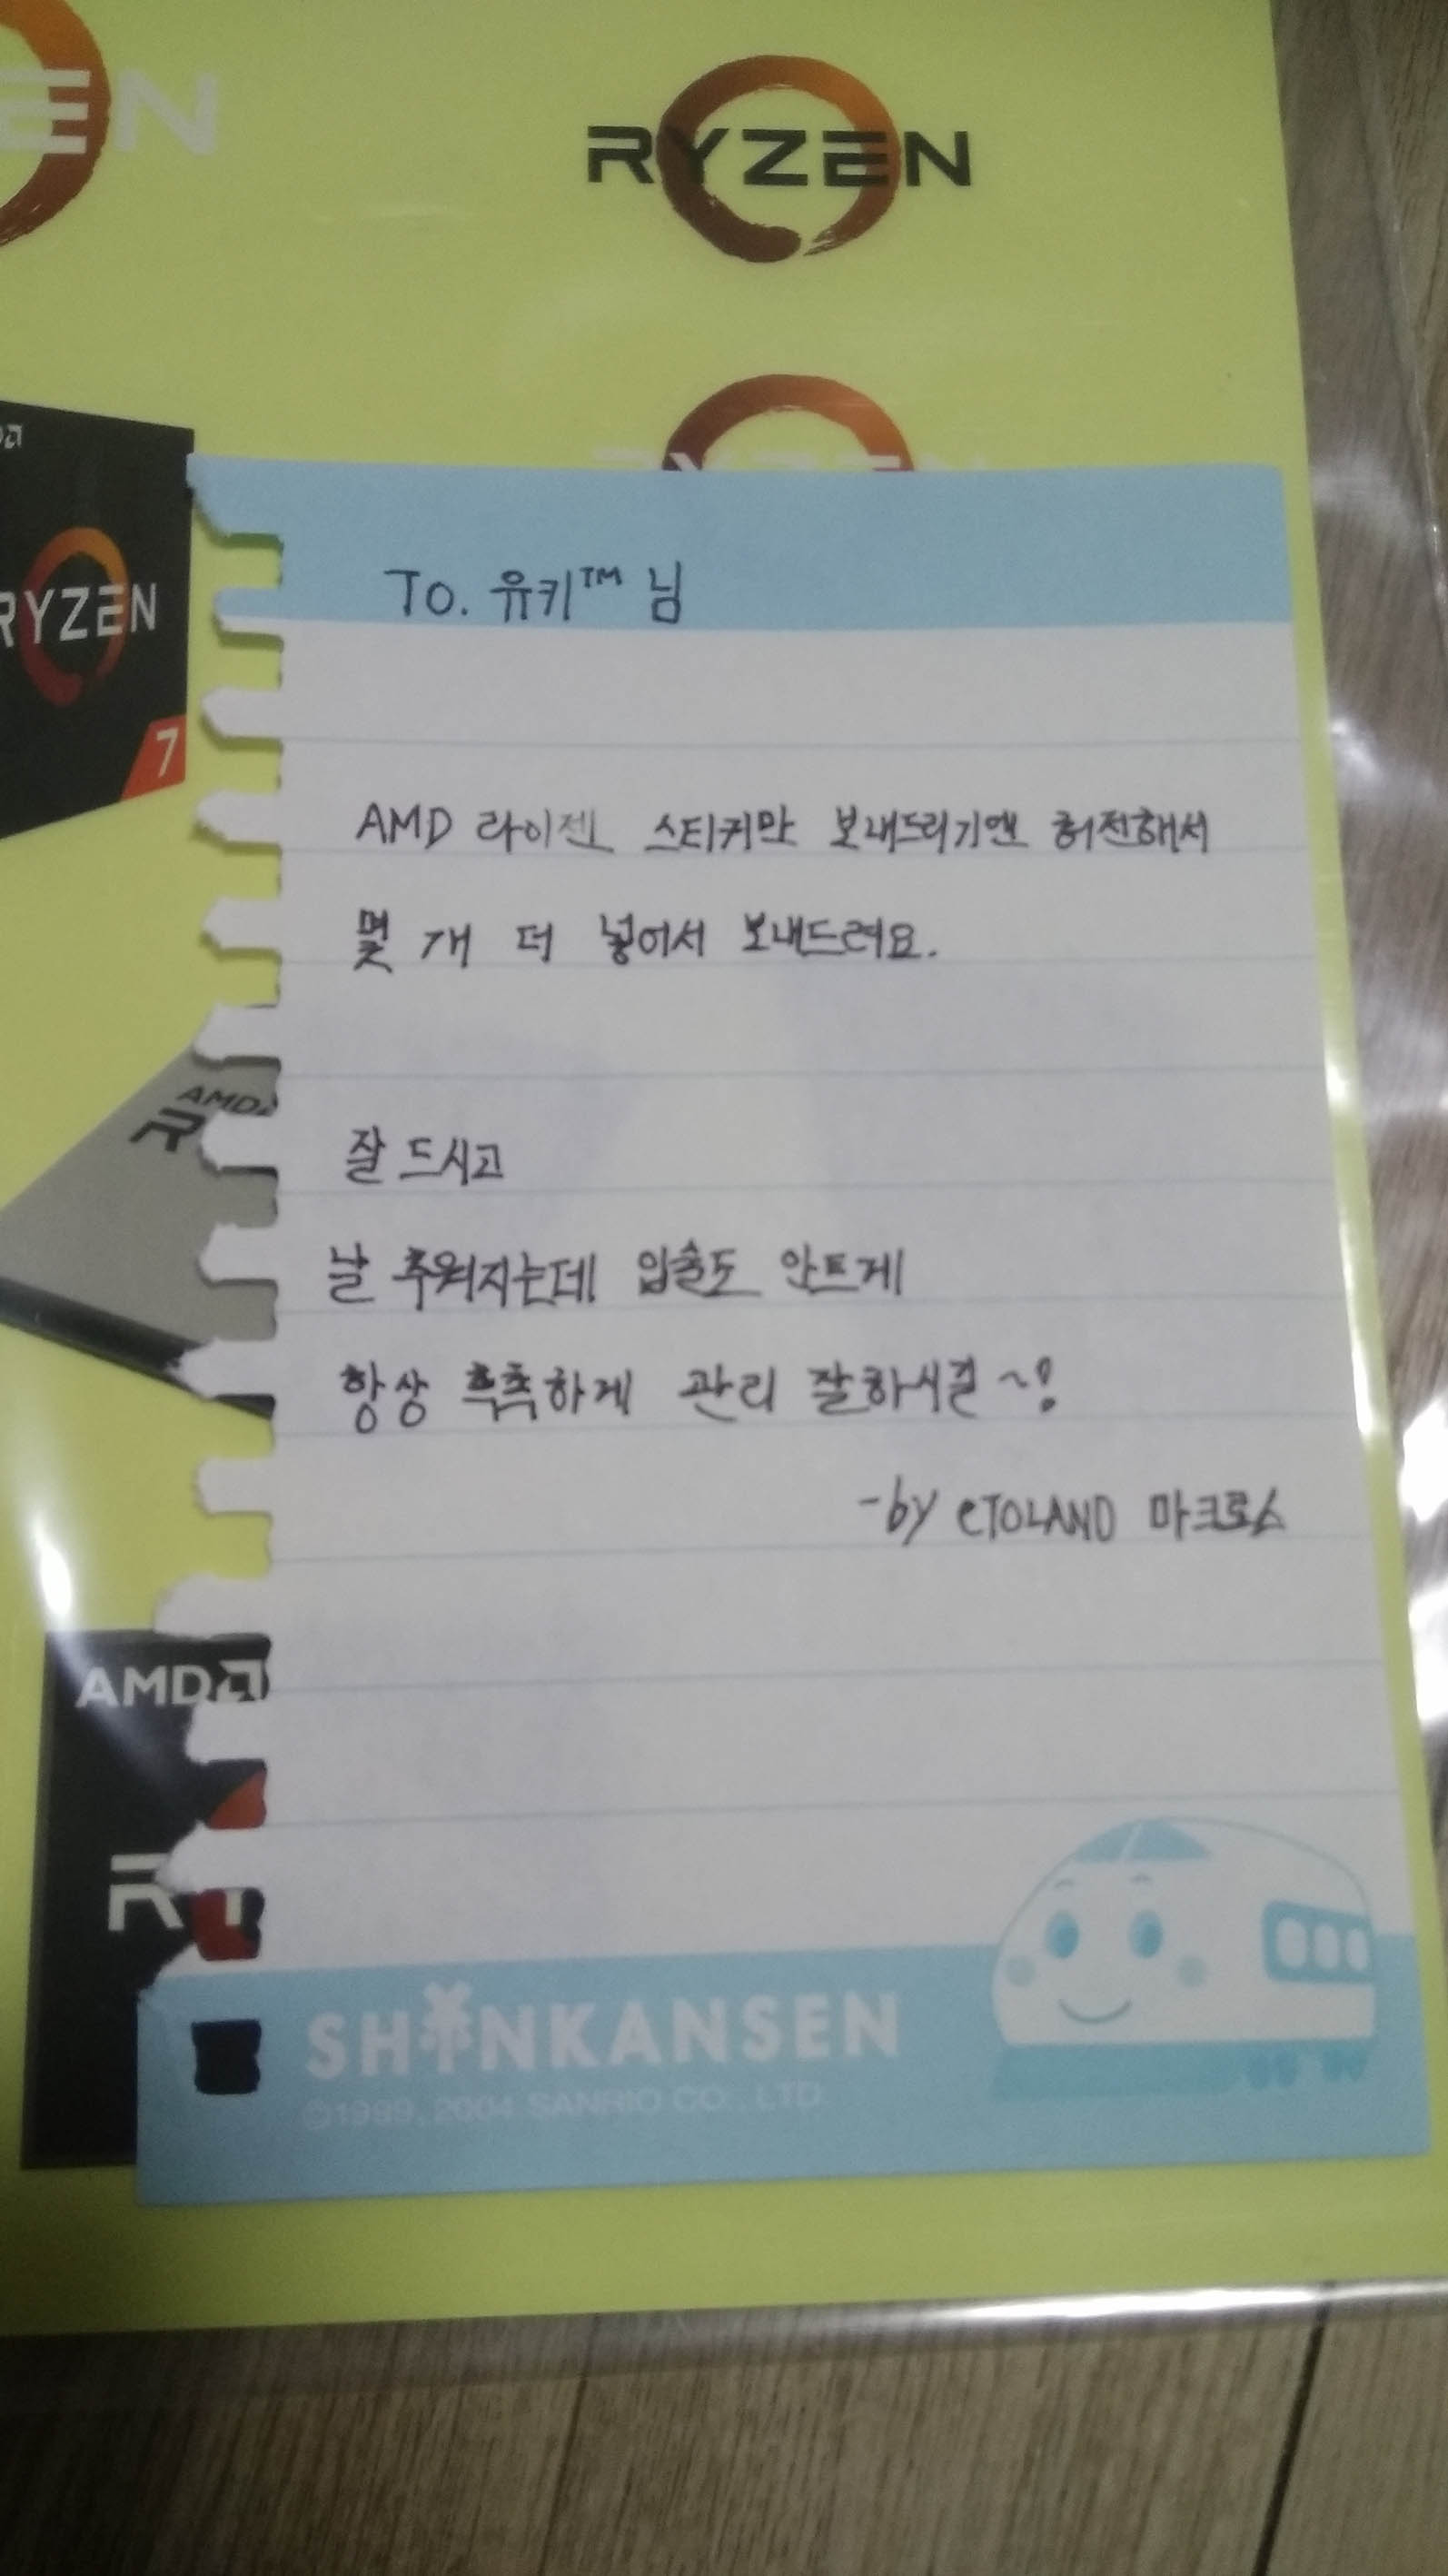 EN
RYZEN
RYZEN
RYZEN
7
To. 유키™ 님
AMD 라이젠 스티커만 보내드리기엔 허전해서
몇 개 더 넣어서 보내드려요.
AMD
R
잘 드시고
날 추워지는데 입술도 안트게
항상 촉촉하게 관리 잘하시길~!
-by eTOLAND 마크로스
AMD
RY
SHINKANSEN
©1989, 2004 SANRIO CO., LTD.